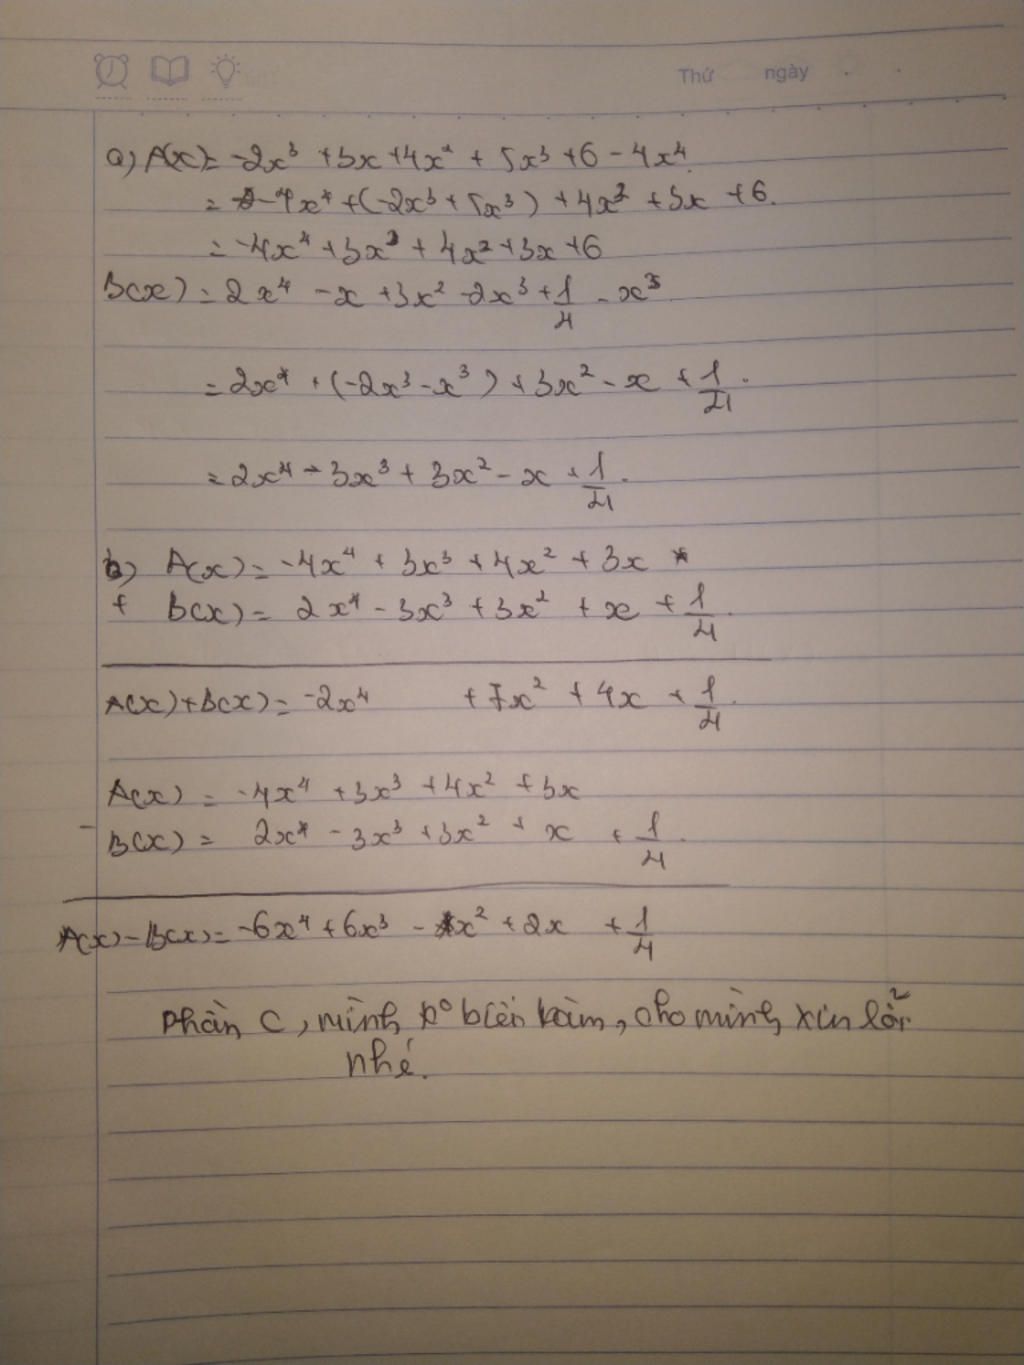 Thứ ngày
a) A(x)= -2x³ + 3x + 4x² + 5x³ + 6 - 4x⁴
= -4x⁴ + (-2x³ + 5x³) + 4x² + 3x + 6.
= -4x⁴ + 3x³ + 4x² + 3x + 6
B(x) = 2x⁴ - x + 3x² - 2x³ + 1/4 - x³
= 2x⁴ + (-2x³ - x³) + 3x² - x + 1/4.
= 2x⁴ - 3x³ + 3x² - x + 1/4.
b) A(x) = -4x⁴ + 3x³ + 4x² + 3x
+ B(x) = 2x⁴ - 3x³ + 3x² + x + 1/4.
A(x)+B(x) = -2x⁴ + 7x² + 4x + 1/4.
A(x) = -4x⁴ + 3x³ + 4x² + 3x
- B(x) = 2x⁴ - 3x³ + 3x² + x + 1/4.
A(x) - B(x) = -6x⁴ + 6x³ - x² + 2x + 1/4
Phần C, mình k° biết làm, cho mình xin lỗi
nhé.